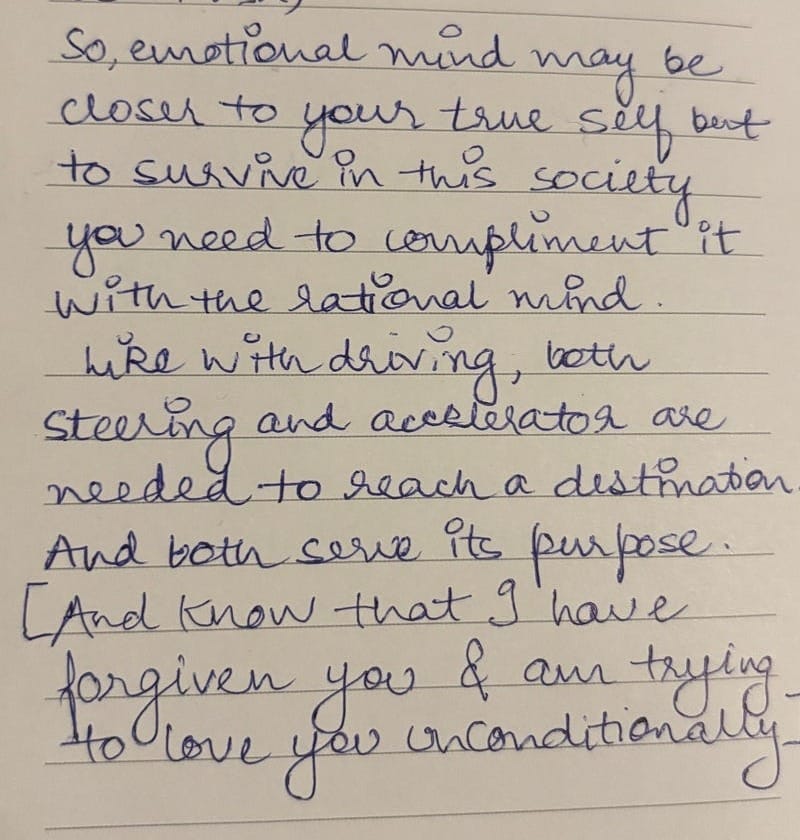 So, emotional mind may be
closer to your true self but
to survive in this society
you need to compliment it
with the rational mind.
Like with driving, both
steering and accelerator are
needed to reach a destination.
And both serve its purpose.
[And know that I have
forgiven you & am trying
to love you unconditionally_